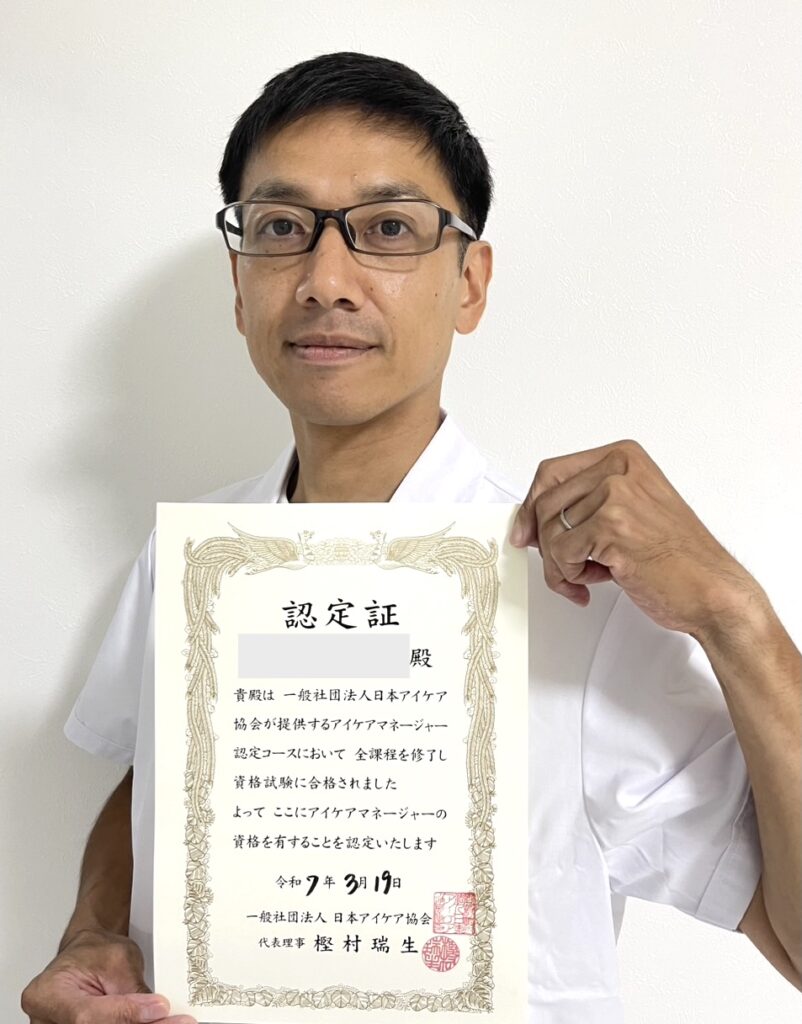 認定証
殿
貴殿は 一般社団法人日本アイケア
協会が提供するアイケアマネージャー
認定コースにおいて 全課程を修了し
資格試験に合格されました
よって ここにアイケアマネージャーの
資格を有することを認定いたします
令和7年3月19日
一般社団法人 日本アイケア協会
代表理事 樫村瑞生